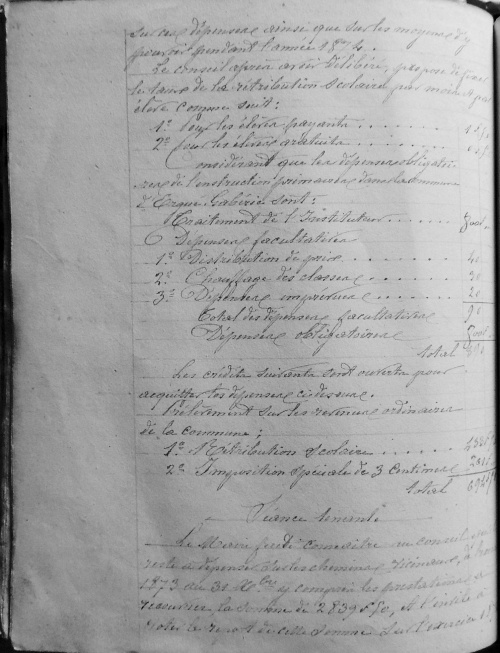 sur ces dépenses ainsi que sur les moyens d'y
pourvoir pendant l'année 1874.
Le conseil après avoir délibéré, propose de fixer
le taux de la rétribution scolaire par mois et par
élève comme suit:
1° Pour les élèves payants . . . . . .
2° Pour les élèves gratuits . . . . . .
Considérant que les dépenses obligatoi-
res de l'instruction primaire dans la commune
d'Ergué-Gabéric sont:
Traitement de l'Instituteur . . . . .
Dépenses facultatives
1° Distribution de prix . . . . . . 40
2° Chauffage des classes . . . . . . 30
3° Dépenses imprévues . . . . . . 20
Total des dépenses facultatives 90
Dépenses obligatoires
total
Les crédits suivants sont ouverts pour
acquitter les dépenses ci-dessus.
Prélèvement sur les revenus ordinaires
de la commune:
1° Rétribution scolaire . . . . . .
2° Imposition spéciale de 3 centimes
total
Séance tenante
Le Maire fait connaître au conseil
reste à dépenser sur les chemins vicinaux,
1873 au 31 Xbre y compris les prestations
la somme de 2839 f 50, et l'invite à
voter le report de cette somme sur l'exercice